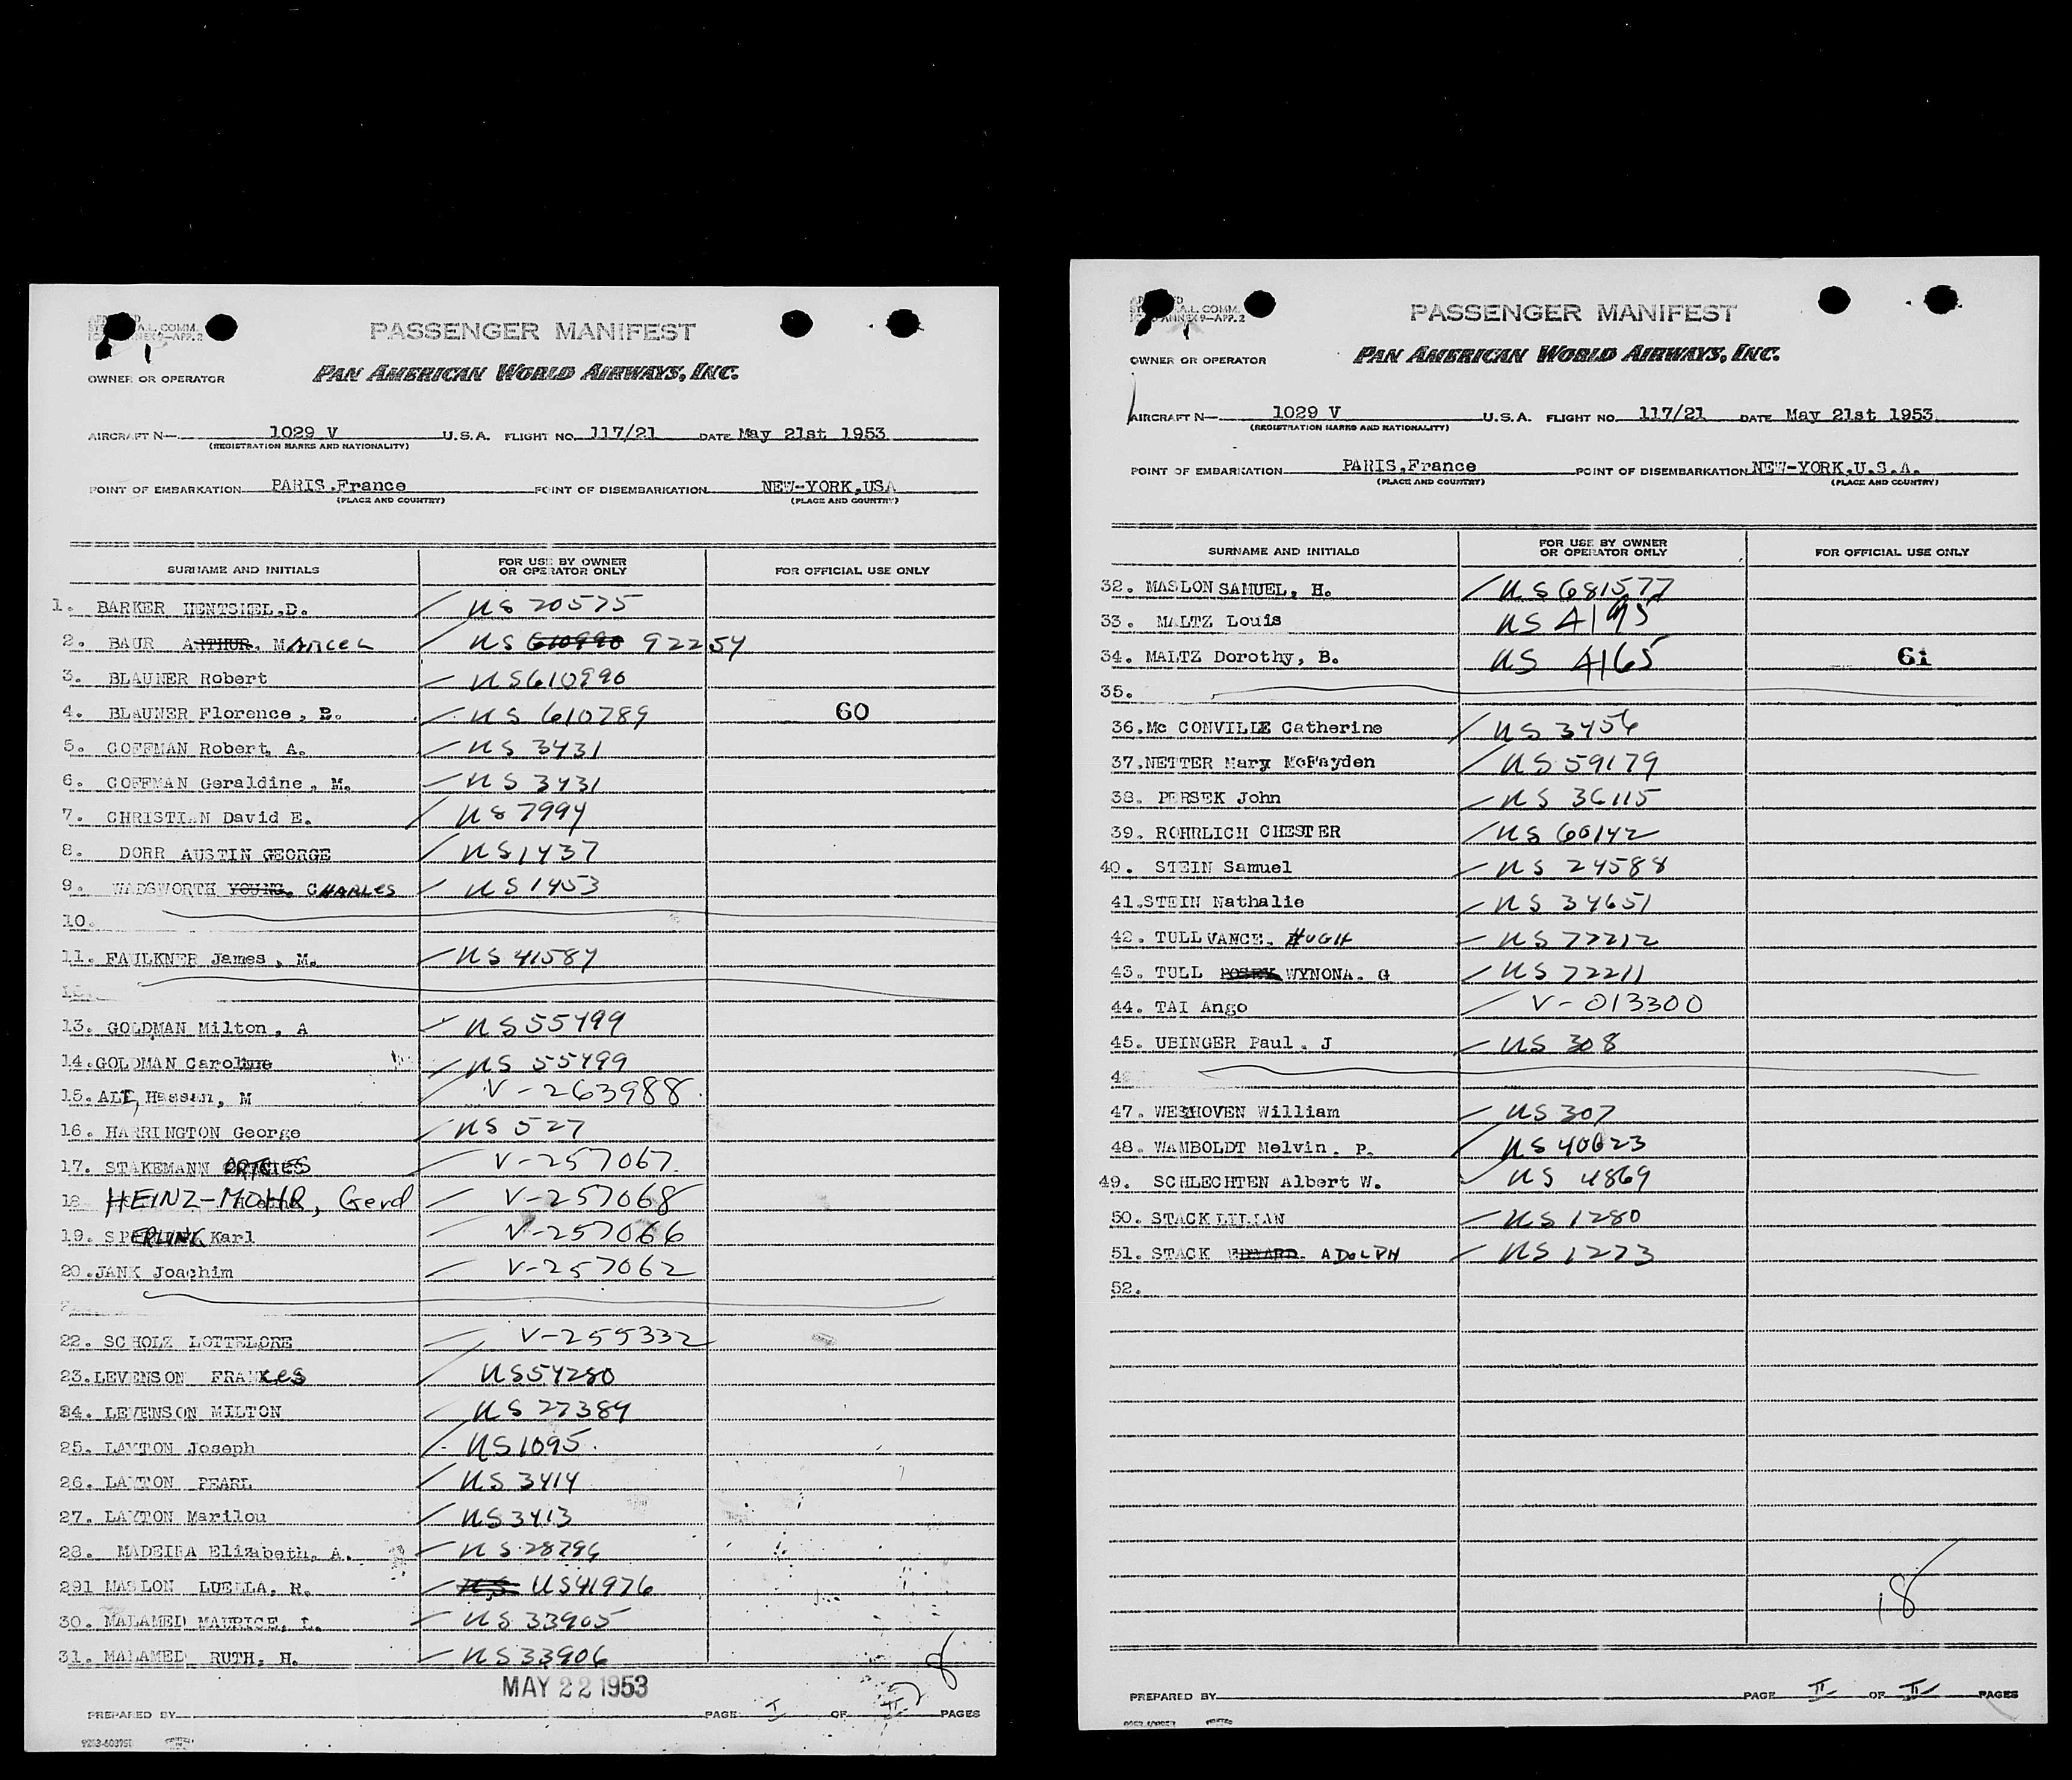 PASSENGER MANIFEST
PAN AMERICAN WORLD AIRWAYS, INC.
OWNER OR OPERATOR
AIRCRAFT N— 1029 V U.S.A. FLIGHT NO. 117/21 DATE May 21st 1953
(REGISTRATION MARKS AND NATIONALITY)
POINT OF EMBARKATION PARIS.France POINT OF DISEMBARKATION NEW-YORK,USA
(PLACE AND COUNTRY) (PLACE AND COUNTRY)
SURNAME AND INITIALS FOR USE BY OWNER OR OPERATOR ONLY FOR OFFICIAL USE ONLY
1. BARKER HENTSHEL.D. US 20575
2. BAUR ARTHUR. MARCEL US 610990 92254
3. BLAUNER Robert US610990
4. BLAUNER Florence, B. US 610789 60
5. COFFMAN Robert, A. US 3431
6. COFFMAN Geraldine, M. US 3431
7. CHRISTIAN David E. US 7994
8. DORR AUSTIN GEORGE US1437
9. WADSWORTH YOUNG. CHARLES US 1453
10.
11. FAULKNER James, M. US 41584
13. GOLDMAN Milton, A US55499
14.GOLDMAN Caroline US 55499
15. ALI, Hassan, M V-263988
16. HARRINGTON George US 527
17. STAKEMANN V-257067
18 HEINZ-MOHR, Gerd V-257068
19. SPERLINK Karl V-257066
20.JANK Joachim V-257062
22. SCHOLZ LOTTELORE V-255332
23.LEVENSON FRANCES US54280
24. LEVENSON MILTON US 27384
25. LAYTON Joseph US1095
26. LAYTON PEARL US 3414
27. LAYTON Marilou US3413
28. MADEIRA Elizabeth, A. US 28796
291 MASLON LUELLA, R. US US41976
30. MALAMED MAURICE, L. US 33905
31. MALAMED RUTH, H. US33906
MAY 22 1953
PREPARED BY PAGE I OF II PAGES
PASSENGER MANIFEST
PAN AMERICAN WORLD AIRWAYS, INC.
OWNER OR OPERATOR
AIRCRAFT N— 1029 V U.S.A. FLIGHT NO. 117/21 DATE May 21st 1953
(REGISTRATION MARKS AND NATIONALITY)
POINT OF EMBARKATION PARIS.France POINT OF DISEMBARKATION NEW-YORK.U.S.A.
(PLACE AND COUNTRY) (PLACE AND COUNTRY)
SURNAME AND INITIALS FOR USE BY OWNER OR OPERATOR ONLY FOR OFFICIAL USE ONLY
32. MASLON SAMUEL, H. US681577
33. MALTZ Louis US 4195
34. MALTZ Dorothy, B. US 4165 61
35.
36.Mc CONVILLE Catherine US 3456
37.NETTER Mary McFayden US 59179
38. PERSEK John US 36115
39. ROHRLICH CHESTER US 60142
40. STEIN Samuel US 24588
41.STEIN Nathalie US 34651
42. TULL VANCE. HUGH US 72212
43. TULL WYNONA. G US 72211
44. TAI Ango V-013300
45. UBINGER Paul. J US 308
47. WESHOVEN William US 307
48. WAMBOLDT Melvin. P. US 40623
49. SCHLECHTEN Albert W. US 4869
50. STACK LILIAN US 1280
51. STACK ADOLPH US 1273
52.
18
PREPARED BY PAGE II OF II PAGES